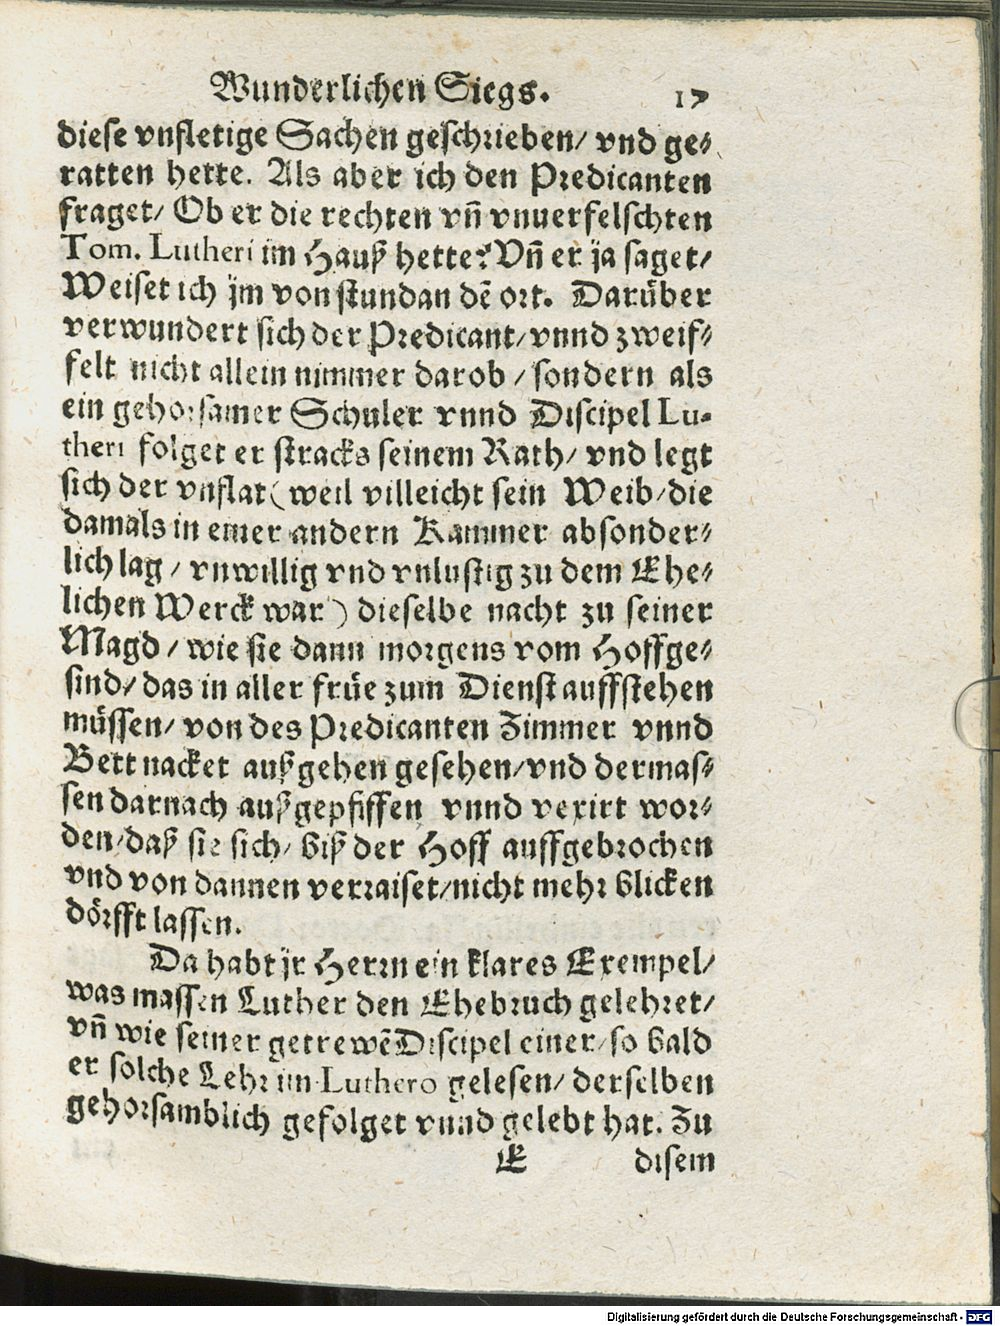 Wunderlichen Siegs. 17
diese vnfletige Sachen geschrieben/ vnd ge⸗
ratten hette. Als aber ich den Predicanten
fraget/ Ob er die rechten vñ vnuerfelschten
Tom. Lutheri im Hauß hette? Vñ er ja saget/
Weiset ich jm von stundan dẽ ort. Darüber
verwundert sich der Predicant/ vnnd zweif⸗
felt nicht allein nimmer darob / sondern als
ein gehorsamer Schuler vnnd Discipel Lu⸗
theri folget er stracks seinem Rath/ vnd legt
sich der vnflat (weil villeicht sein Weib/ die
damals in einer andern Kammer absonder⸗
lich lag / vnwillig vnd vnlustig zu dem Ehe⸗
lichen Werck war) dieselbe nacht zu seiner
Magd / wie sie dann morgens vom Hoffge⸗
sind/ das in aller früe zum Dienst auffstehen
müssen/ von des Predicanten Zimmer vnnd
Bett nacket außgehen gesehen/ vnd dermas⸗
sen darnach außgepfiffen vnnd vexirt wor⸗
den/ daß sie sich/ biß der Hoff auffgebrochen
vnd von dannen verraiset/ nicht mehr blicken
dörfft lassen.
Da habt jr Herrn ein klares Exempel/
was massen Luther den Ehebruch gelehret/
vñ wie seiner getrewẽ Discipel einer/ so bald
er solche Lehr im Luthero gelesen/ derselben
gehorsamblich gefolget vnnd gelebt hat. Zu
E disem
Digitalisierung gefördert durch die Deutsche Forschungsgemeinschaft - DFG